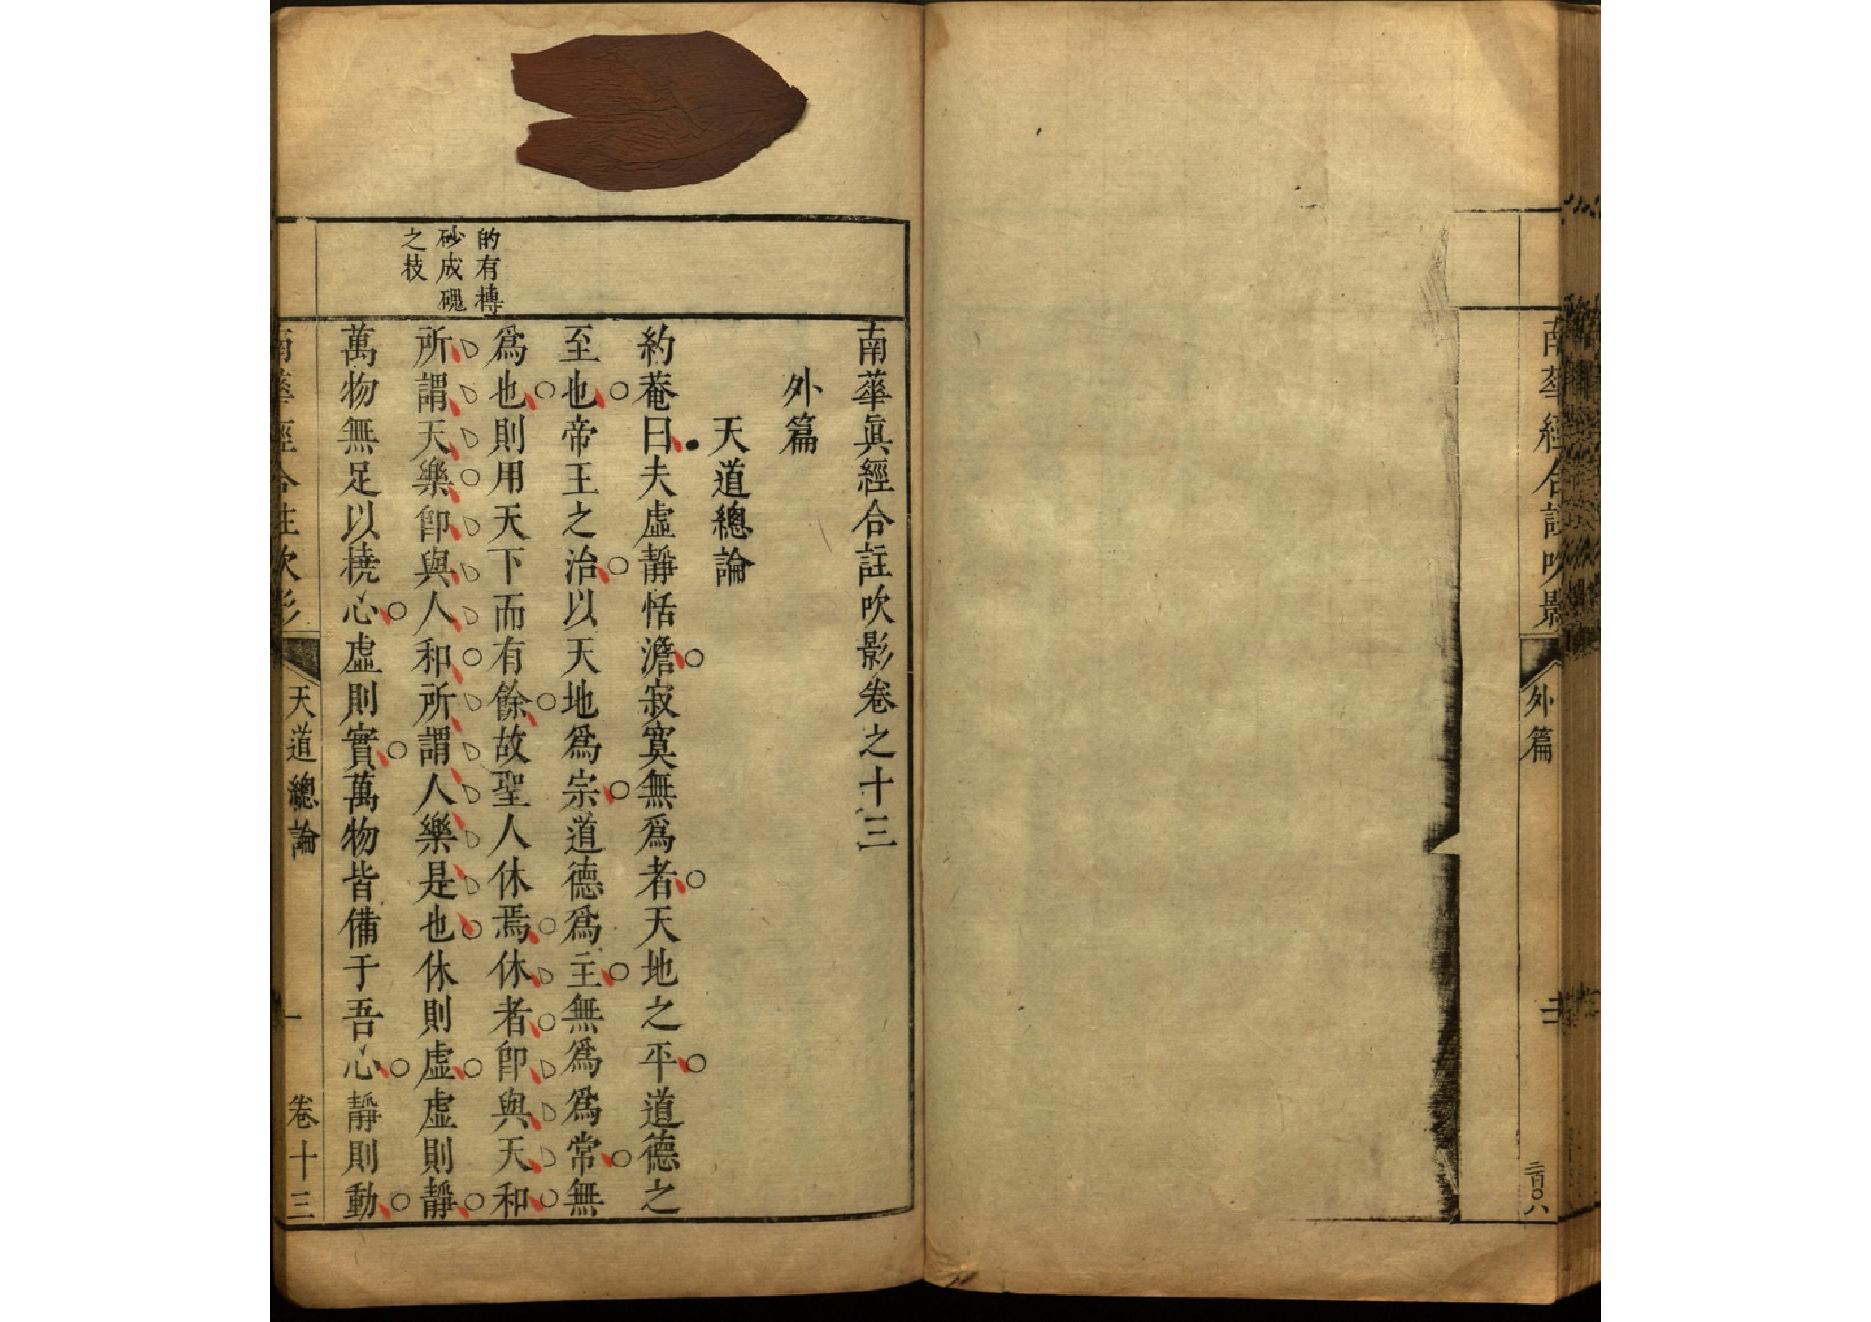 南華經合註吹影
外篇
二百〇八
南華眞經合註吹影卷之十三
外篇
天道總論
約菴曰夫虛靜恬澹寂寞無爲者天地之平道德之
至也帝王之治以天地爲宗道德爲主無爲爲常無
爲也則用天下而有餘故聖人休焉休者卽與天和
所謂天樂卽與人和所謂人樂是也休則虛虛則靜
萬物無足以橈心虛則實萬物皆備于吾心靜則動
的有摶
砂成磈
之技
南華經合註吹影
天道總論
一
卷十三